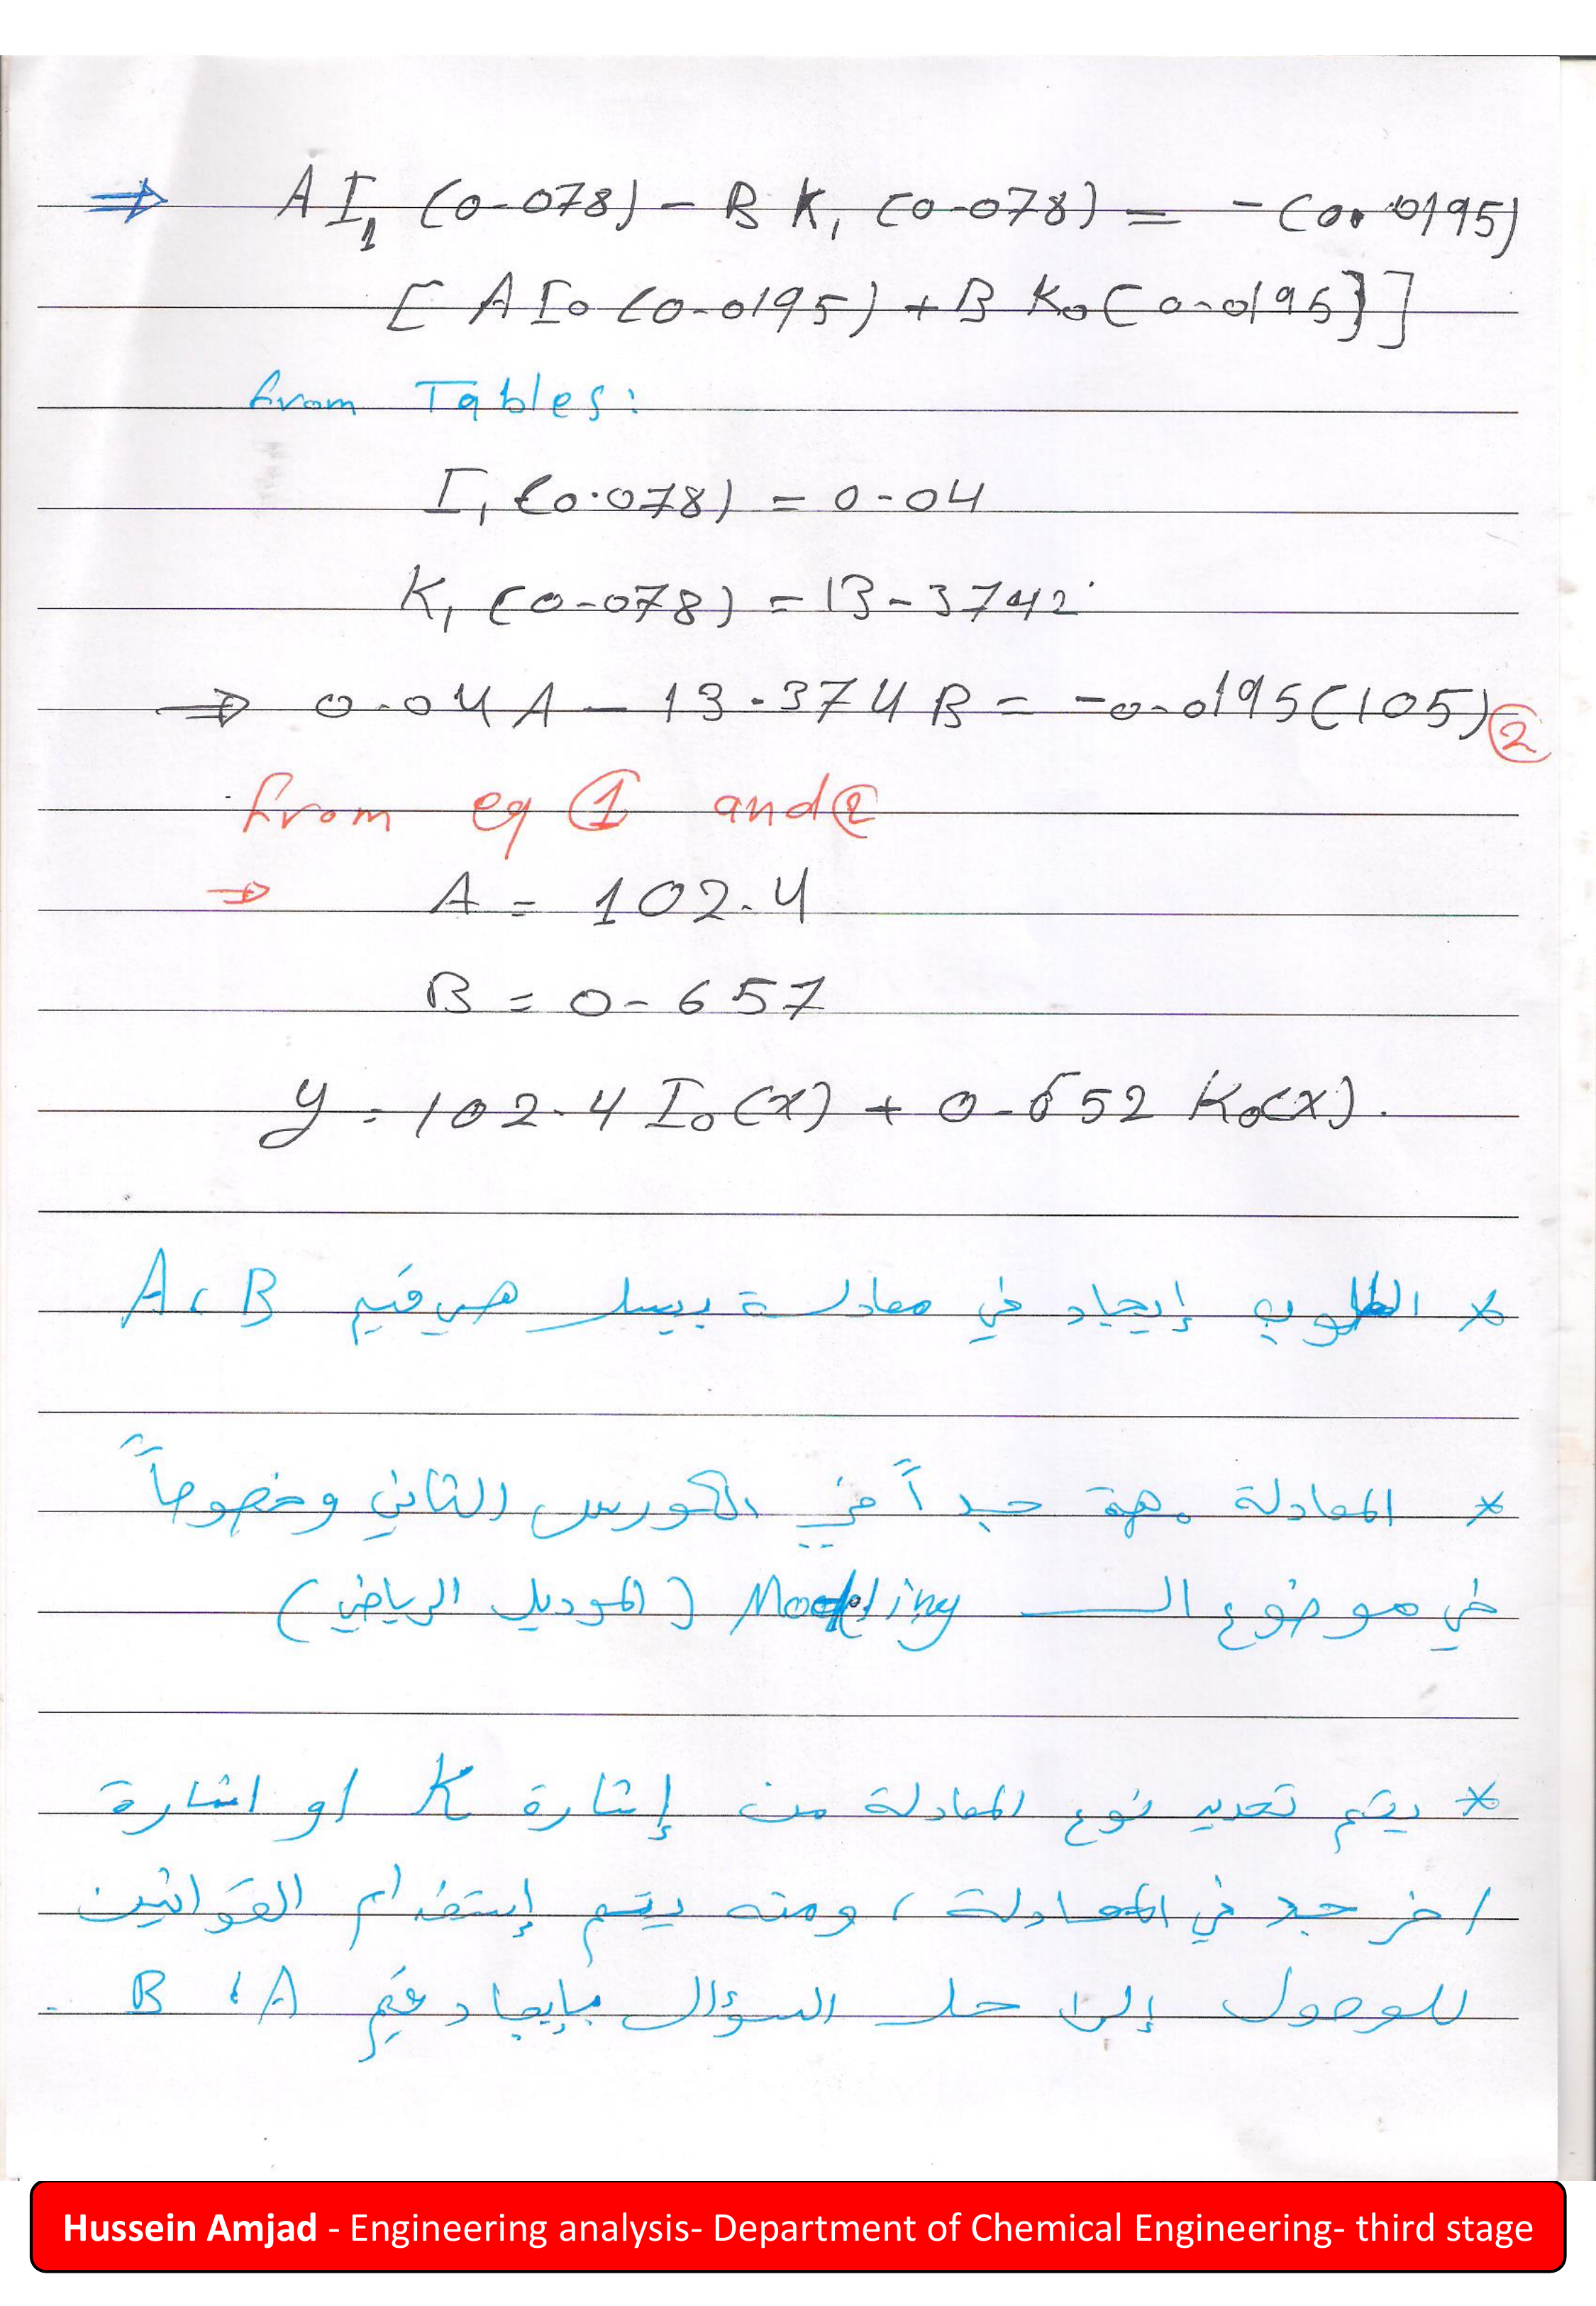 ⇒ A I₁ (0.078) - B K₁ (0.078) = -(0.0195)
[ A I₀ (0.0195) + B K₀ (0.0195)]
from Tables:
I₁ (0.078) = 0.04
K₁ (0.078) = 13.3742
⇒ 0.04 A - 13.374 B = -0.0195(105) ②
from eq ① and ②
⇒ A = 102.4
B = 0.657
y = 102.4 I₀(x) + 0.652 K₀(x).
* المطلوب إيجاد في معادلة بيسل هي قيم A، B
* المعادلة مهمة جداً في الكورس الثاني وخصوصاً
في موضوع الـ Modeling (الموديل الرياضي)
* يتم تحديد نوع المعادلة من إشارة K او اشارة
اخر حد في المعادلة، ومنه يتم إستخدام القوانين
للوصول إلى حل السؤال بإيجاد قيم A، B.
Hussein Amjad - Engineering analysis- Department of Chemical Engineering- third stage